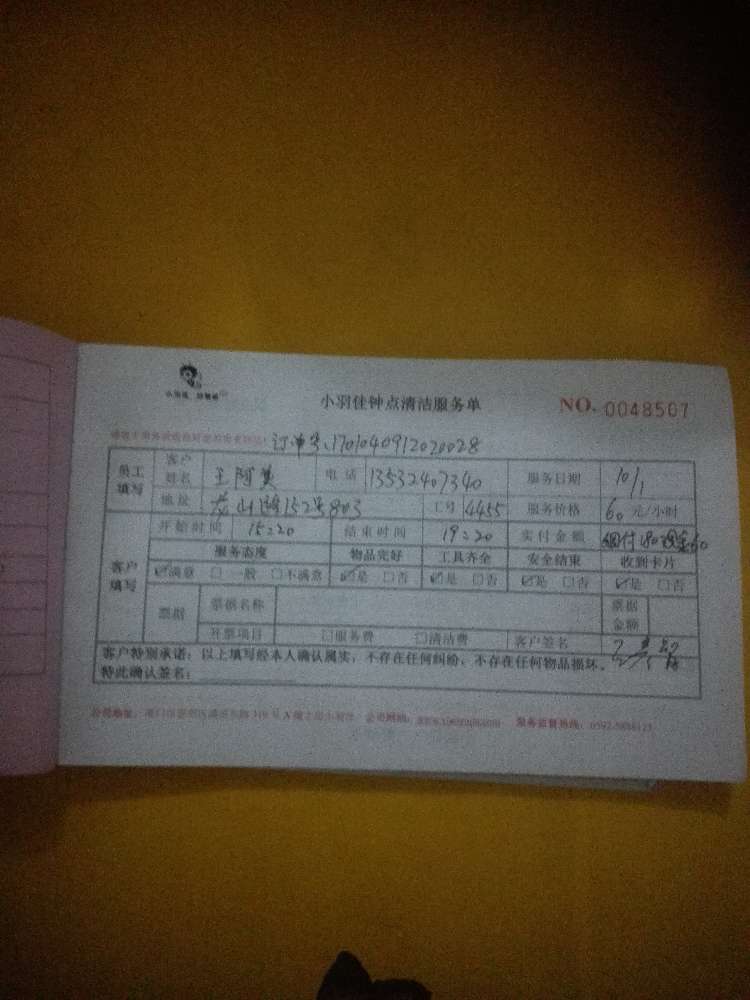 小羽佳钟点清洁服务单 NO. 0048507
订单号:1701040912020028
员工填写 客户姓名 王阿 电话 13532407340 服务日期 10/1
地址 龙山路152号803 工号 4455 服务价格 60 元/小时
客户填写 开始时间 15:20 结束时间 19:20 实付金额 网付180现金60
服务态度 物品完好 工具齐全 安全结束 收到卡片
☑满意 □一般 □不满意 ☑是 □否 ☑是 □否 ☑是 □否 ☑是 □否
票据 票据名称 票据金额
开票项目 □服务费 □清洁费 客户签名
客户特别承诺:以上填写经本人确认属实,不存在任何纠纷,不存在任何物品损坏。
特此确认签名:
公司地址: 服务监督热线: